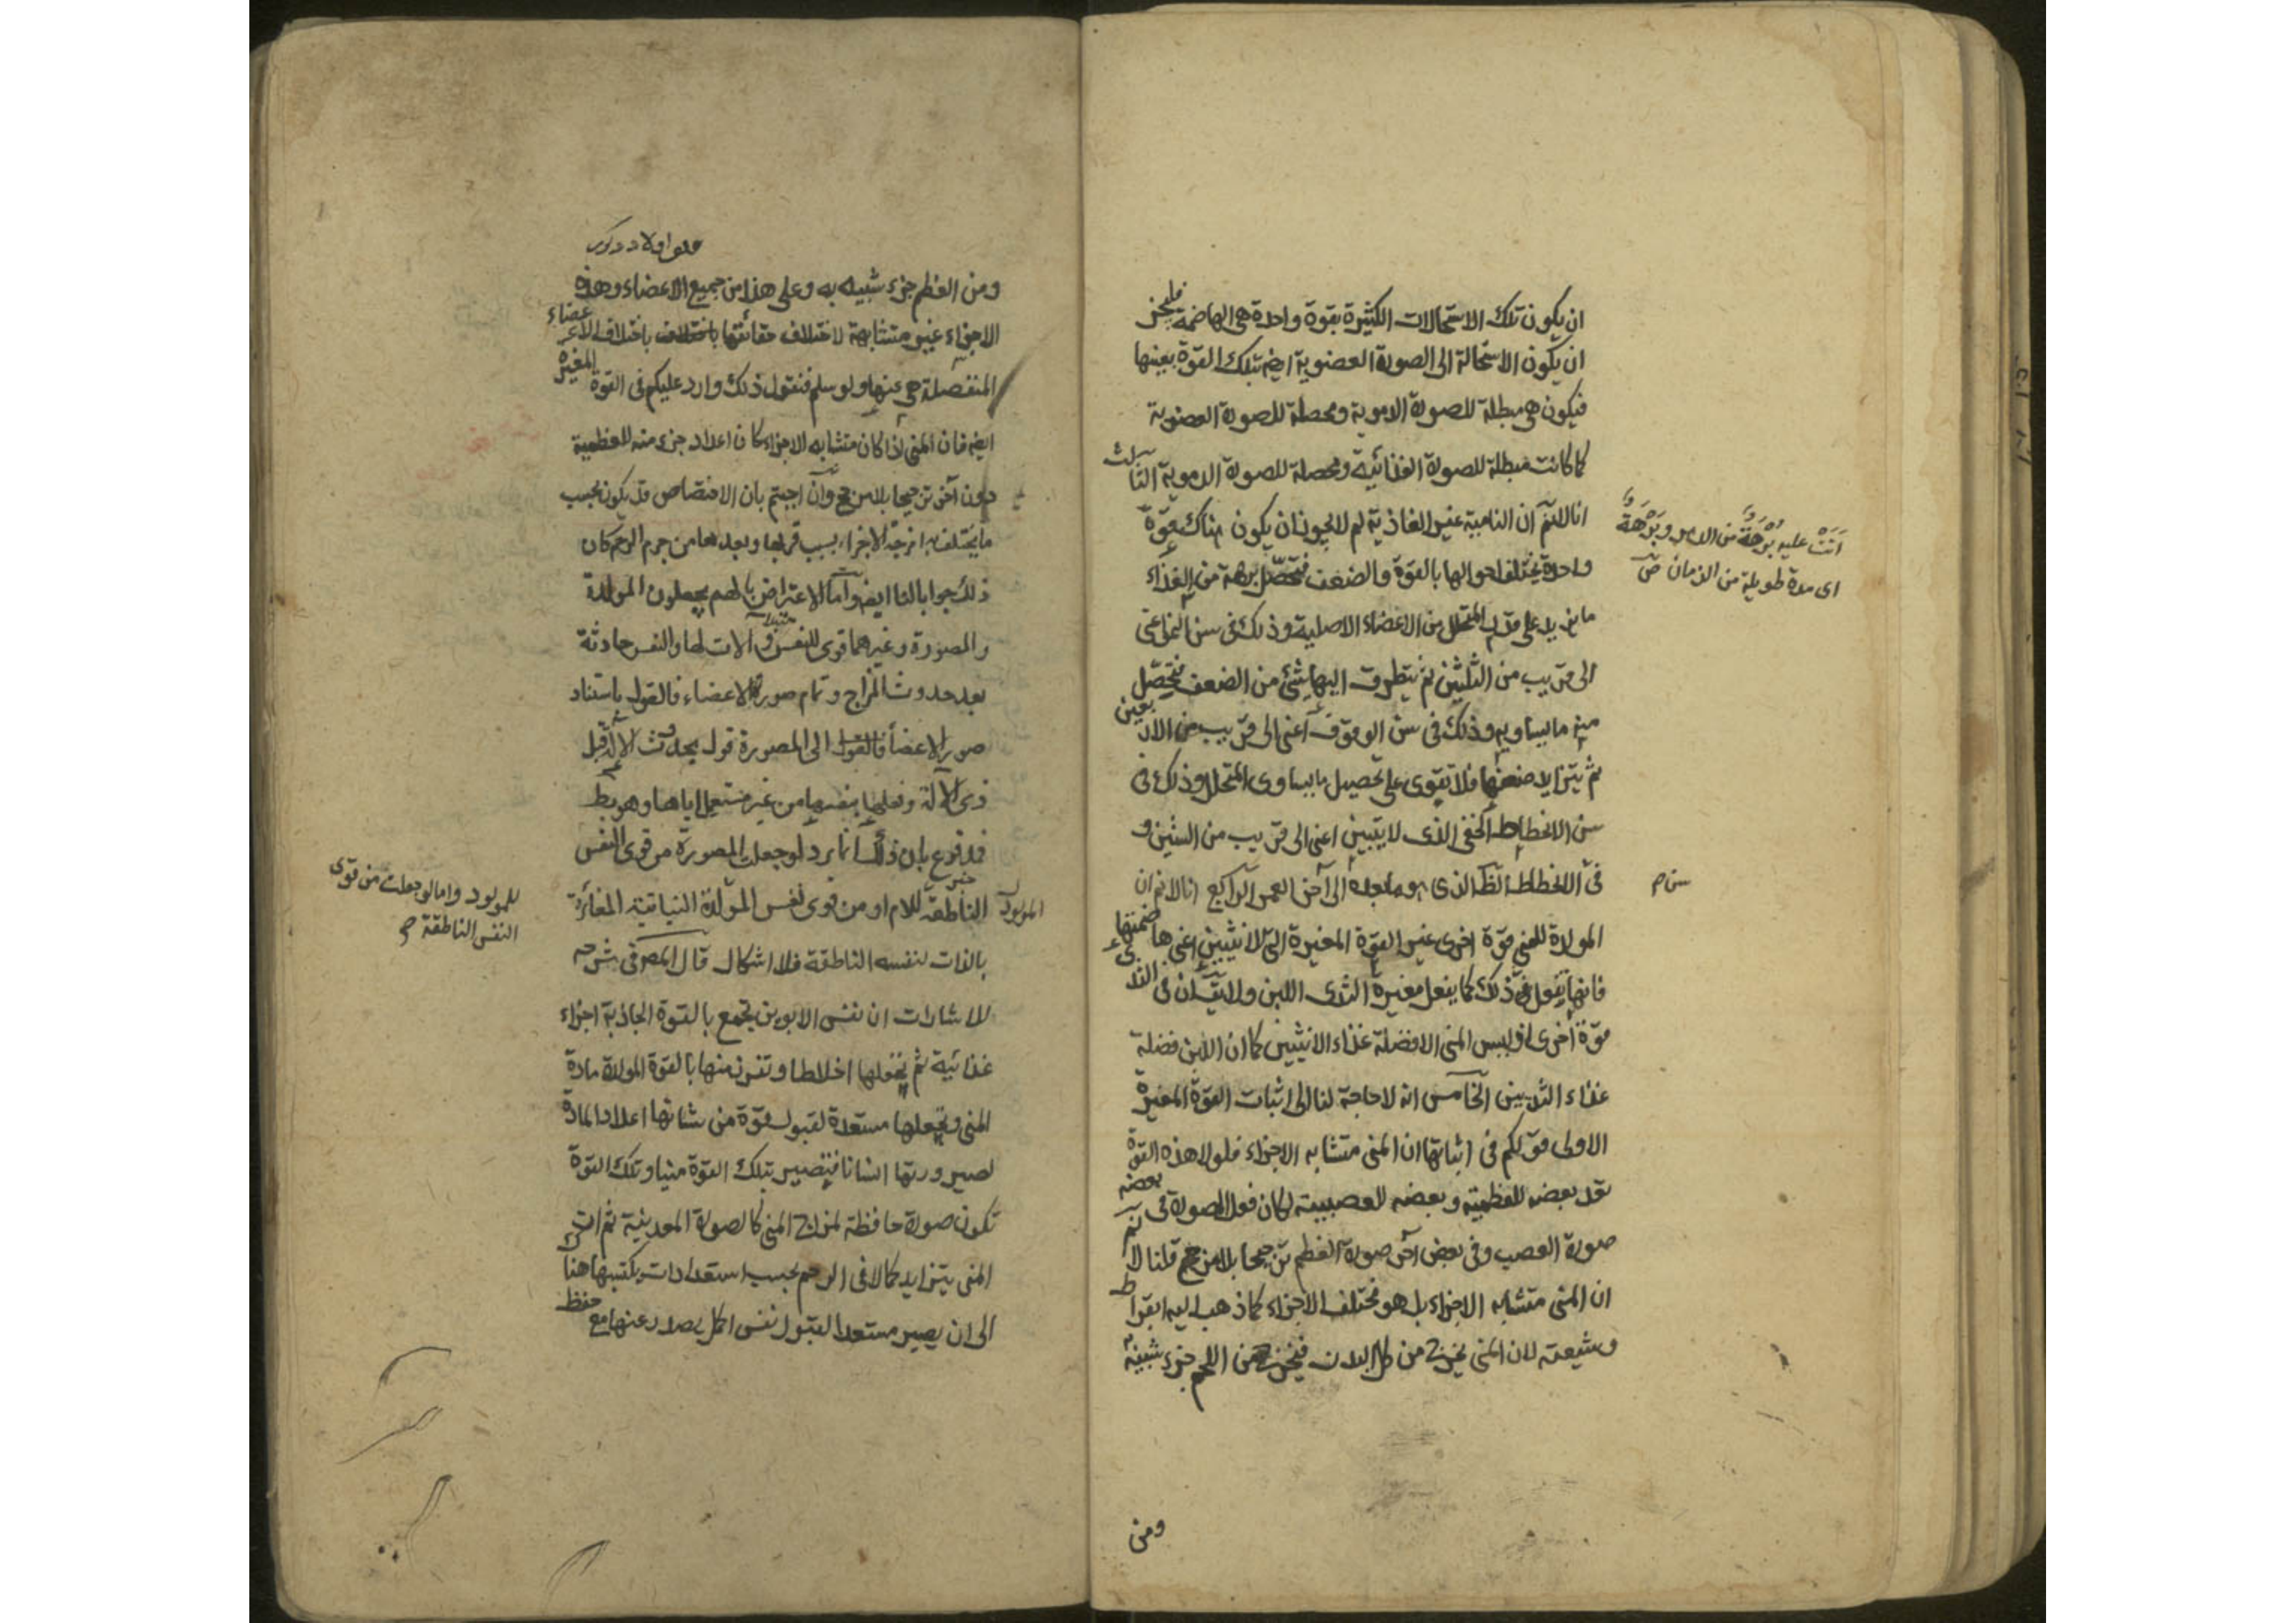 ان يكون تلك الاستحالات الكثيرة بقوة واحدة هى الهاضمة فليجز
ان يكون الاستحالة الى الصورة العضوية ايضا بتلك القوة بعينها
فيكون هى مبطلة للصورة الدموية ومحصلة للصورة العضوية
كما كانت مبطلة للصورة الغذائية ومحصلة للصورة الدموية الثالث
انا لانم ان النامية غير الغاذية لم لا يجوز ان يكون هناك قوة
واحدة يختلف احوالها بالقوة والضعف فتحصل برهة من الغذاء
ما يزيد على قدر المتحلل من الاعضاء الاصلية وذلك فى سن النمو اعنى
الى قريب من الثلثين ثم يتطرق اليها شئ من الضعف فتحصل
منه ما يساويه وذلك فى سن الوقوف اعنى الى قريب من الاربعين
ثم يتزايد ضعفها فلا تقوى على تحصيل ما يساوى المتحلل وذلك فى
سن الانحطاط الخفى الذى لا يتبين اعنى الى قريب من الستين و
فى الانحطاط الظ الذى هو ما بعده الى آخر العمر الرابع انا لا نم ان
المولدة للمنى قوة اخرى غير القوة المغيرة التى للانثيين اعنى هاضمتها
فانها تفعل ذلك كما يفعل مغيرة الثدى اللبن ولا يق ان فى الثدى
قوة اخرى اذ ليس المنى الا فضلة غذاء الانثيين كما ان اللبن فضلة
غذاء الثديين الخامس انه لا حاجة لنا الى اثبات القوة المغيرة
الاولى قولكم فى اثباتها ان المنى متشابه الاجزاء فلولا هذه القوة
تعد بعضه للعظمية وبعضه للعصبية لكان فعل المصورة فى بعضه
صورة العصب وفى بعض آخر صورة العظم ترجيحا بلا مرجح قلنا لا نم
ان المنى متشابه الاجزاء بل هو مختلف الاجزاء كما ذهب اليه ابقراط
وشيعته لان المنى يخرج من كل البدن فيخرج من اللحم جزء شبيه به
ومن
أتت عليه بُرْهَةٌ من الدهر وبَرْهَةٌ
اى مدة طويلة من الزمان ص
سن م
ومن العظم جزء شبيه به وعلى هذا من جميع الاعضاء وهذه
الاجزاء غير متشابهة لاختلاف حقائقها باختلاف الاعضاء
المنفصلة هى عنها ولو سلم فنقول ذلك وارد عليكم فى القوة المغيرة
ايضا فان المنى اذا كان متشابه الاجزاء كان اعداد جزء منه للعظمية
دون آخر ترجيحا بلا مرجح وان اجبتم بان الاختصاص قد يكون بحسب
ما يختلف به امزجة الاجزاء بسبب قربها وبعدها من جرم الرحم كان
ذلك جوابا لنا ايضا واما الاعتراض بانهم يجعلون المولدة
والمصورة وغيرهما قوى للنفس وآلات لها والنفس حادثة
بعد حدوث المزاج وتمام صور الاعضاء فالقول باستناد
صور الاعضاء الى المصورة قول بحدوث الآلة قبل
ذى الآلة وفعلها بنفسها من غير مستعمل اياها وهو بط
فدفوع بان ذلك انما يرد لو جعلت المصورة من قوى النفس
الناطقة للام او من قوى نفس المولدة النباتية المغائرة
المولود
بالذات لنفسه الناطقة فلا اشكال قال المصر فى شرحه
للاشارات ان نفس الابوين تجمع بالقوة الجاذبة اجزاء
غذائية ثم يجعلها اخلاطا وتفرز منها بالقوة المولدة مادة
المنى وتجعلها مستعدة لقبول قوة من شانها اعداد المادة
لصيرورتها انسانا فتصير بتلك القوة منيا وتلك القوة
تكون صورة حافظة لمزاج المنى كالصورة المعدنية ثم ان
المنى يتزايد كمالا فى الرحم بحسب استعدادات يكتسبها هناك
الى ان يصير مستعدا لقبول نفس اكمل يصدر عنها مع حفظ
للمولود واما لو جعلت من قوى
النفس الناطقة